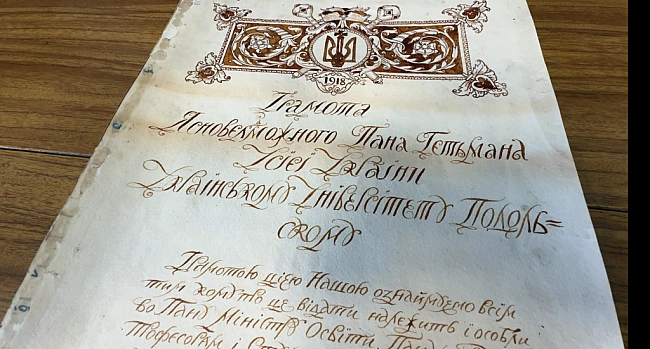 1918
Грамота
Ясновелможного Пана Гетьмана
Усієї України
Українському Університету Подоль=
скому
Грамотою цією Нашою ознаймуемо всім
тим кому то це відати належить і особли
во Пану Міністру Освіти, Панам
Професорам і